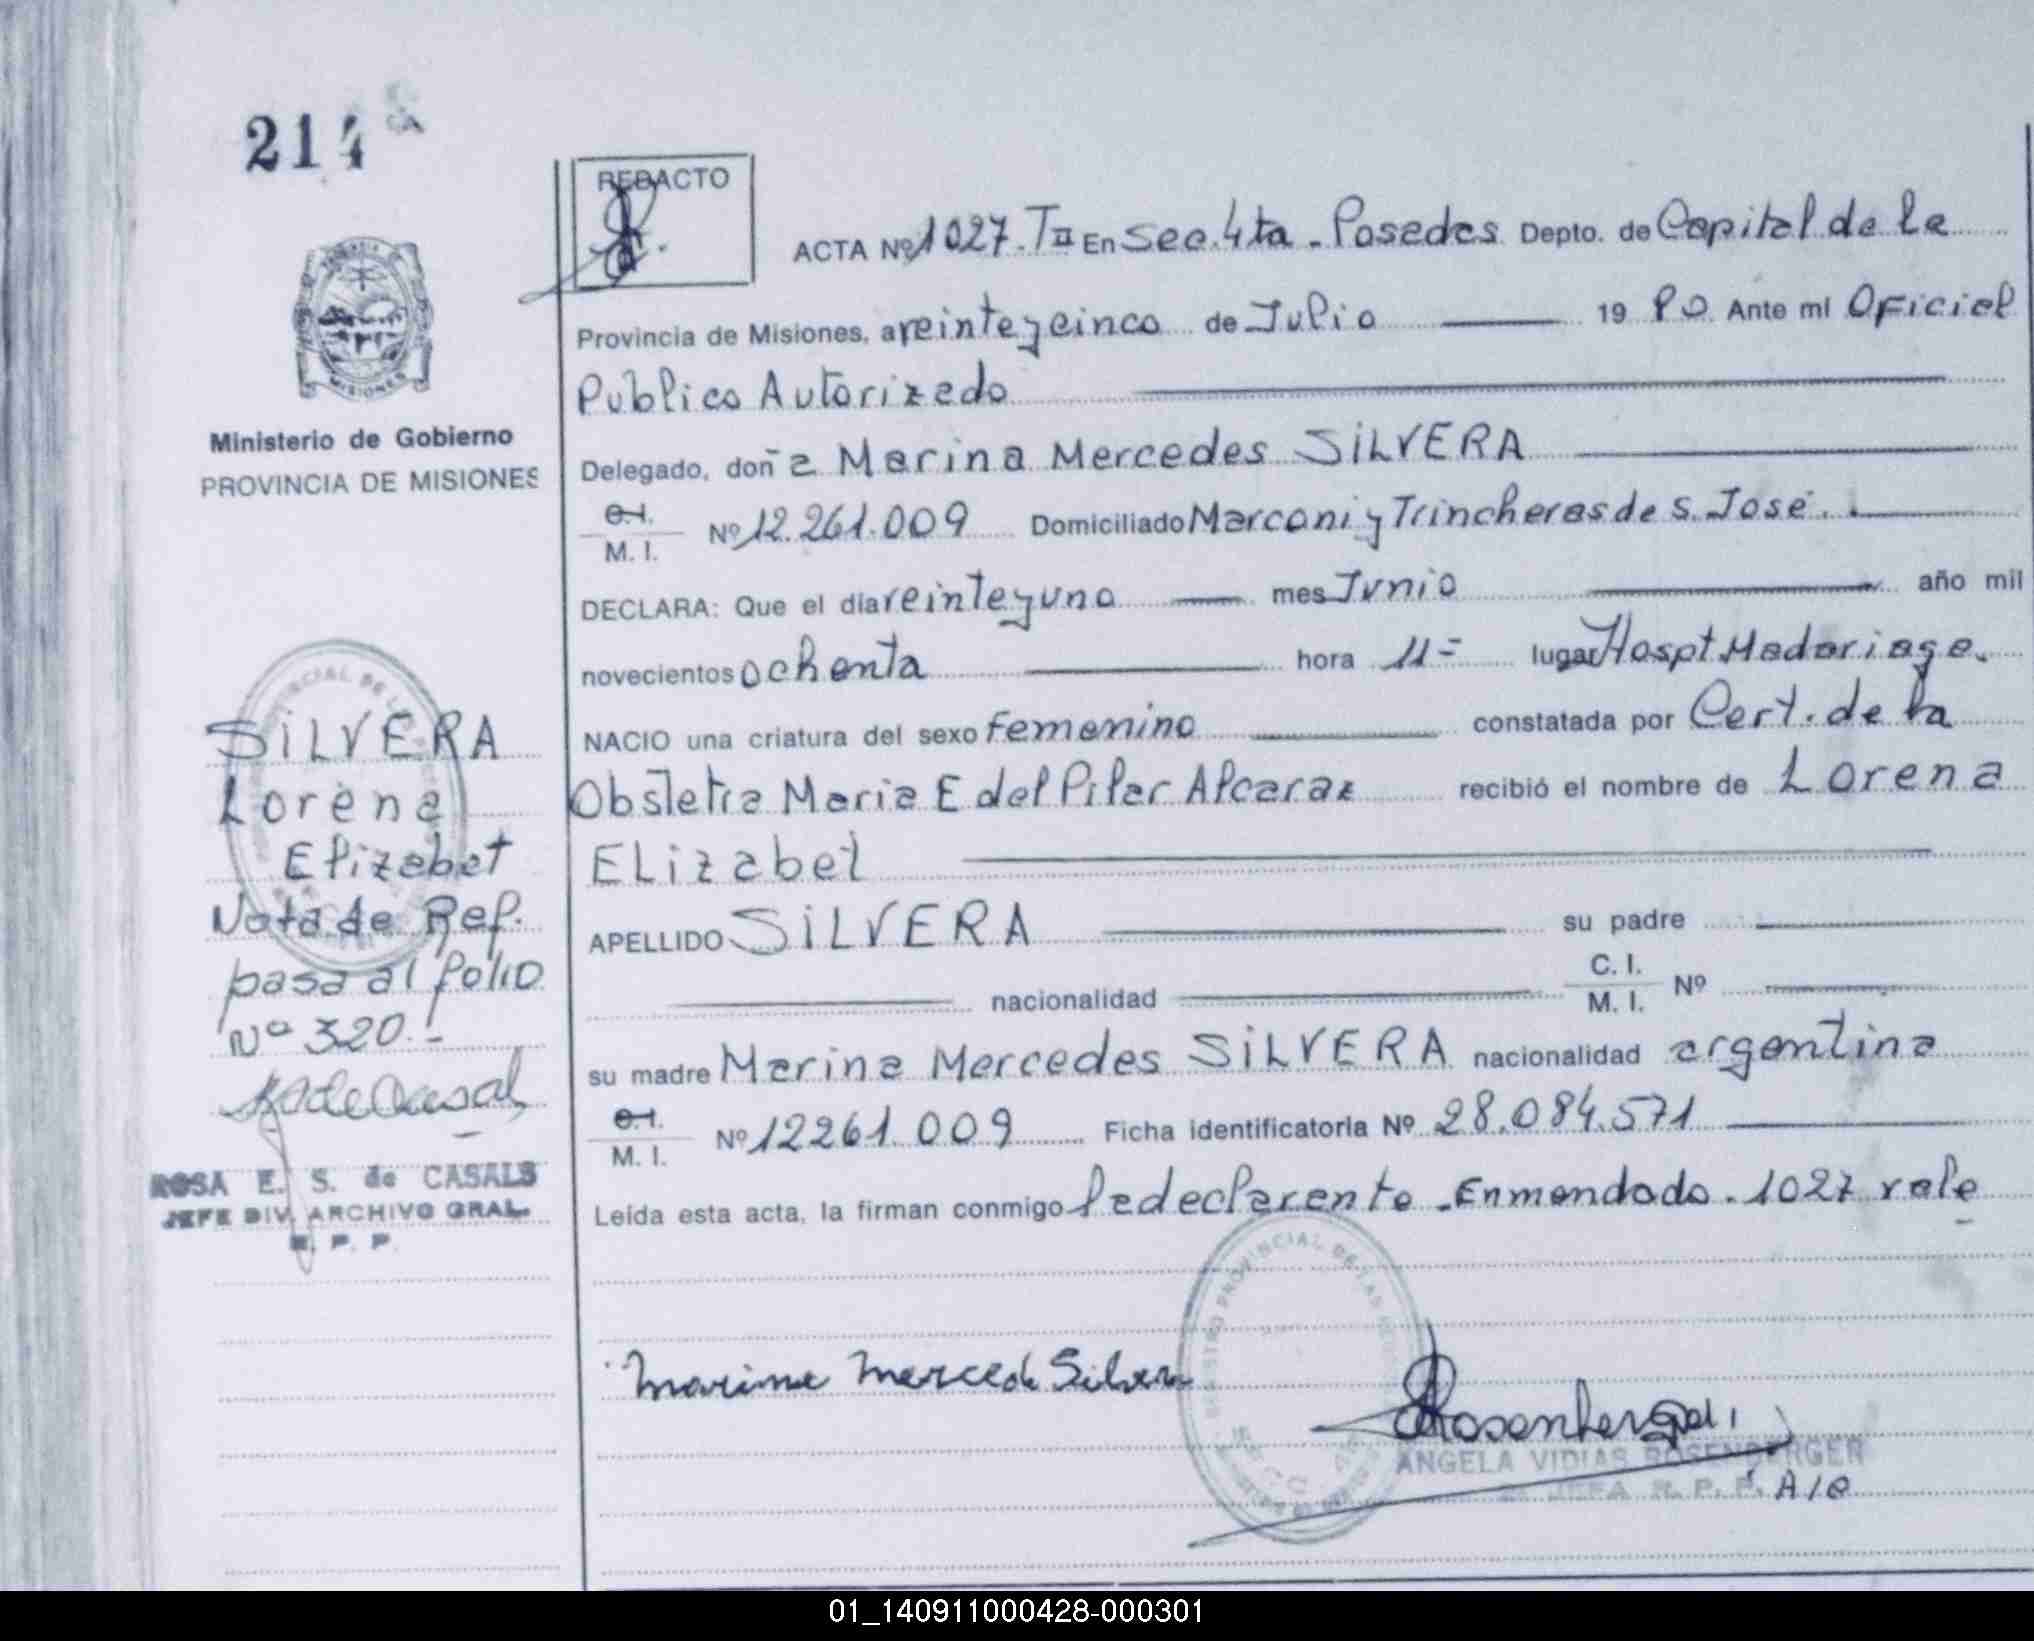 214
REDACTO
ACTA Nº 1027. T II En Sec. 4ta - Posadas Depto. de Capital de la
Provincia de Misiones, a veinte y cinco de Julio 19 80 Ante mi Oficial
Publico Autorizado
Delegado, doña Marina Mercedes SILVERA
C.I.
M. I. Nº 12.261.009 Domiciliado Marconi y Trincheras de S. José.
DECLARA: Que el día veinte y uno mes Junio año mil
novecientos ochenta hora 11- lugar Hospt. Madariaga.
NACIO una criatura del sexo Femenino constatada por Cert. de la
Obstetra Maria E del Pilar Alcaraz recibió el nombre de Lorena
ELizabet
APELLIDO SILVERA su padre
nacionalidad C. I. M. I. Nº
su madre Marina Mercedes SILVERA nacionalidad argentina
C.I.
M. I. Nº 12261.009 Ficha identificatoria Nº 28.084.571
Leída esta acta, la firman conmigo la declarante - Enmendado. 1027 vale
Marina Mercede Silvera
Rosenberger
ANGELA VIDIAS ROSENBERGER
2ª JEFA R. P. P. A/C
MISIONES
Ministerio de Gobierno
PROVINCIA DE MISIONES
SILVERA
Lorena
Elizabet
Nota de Ref.
pasa al folio
Nº 320.-
ROSA E. S. de CASALS
JEFE DIV. ARCHIVO GRAL.
R. P. P.
01_140911000428-000301